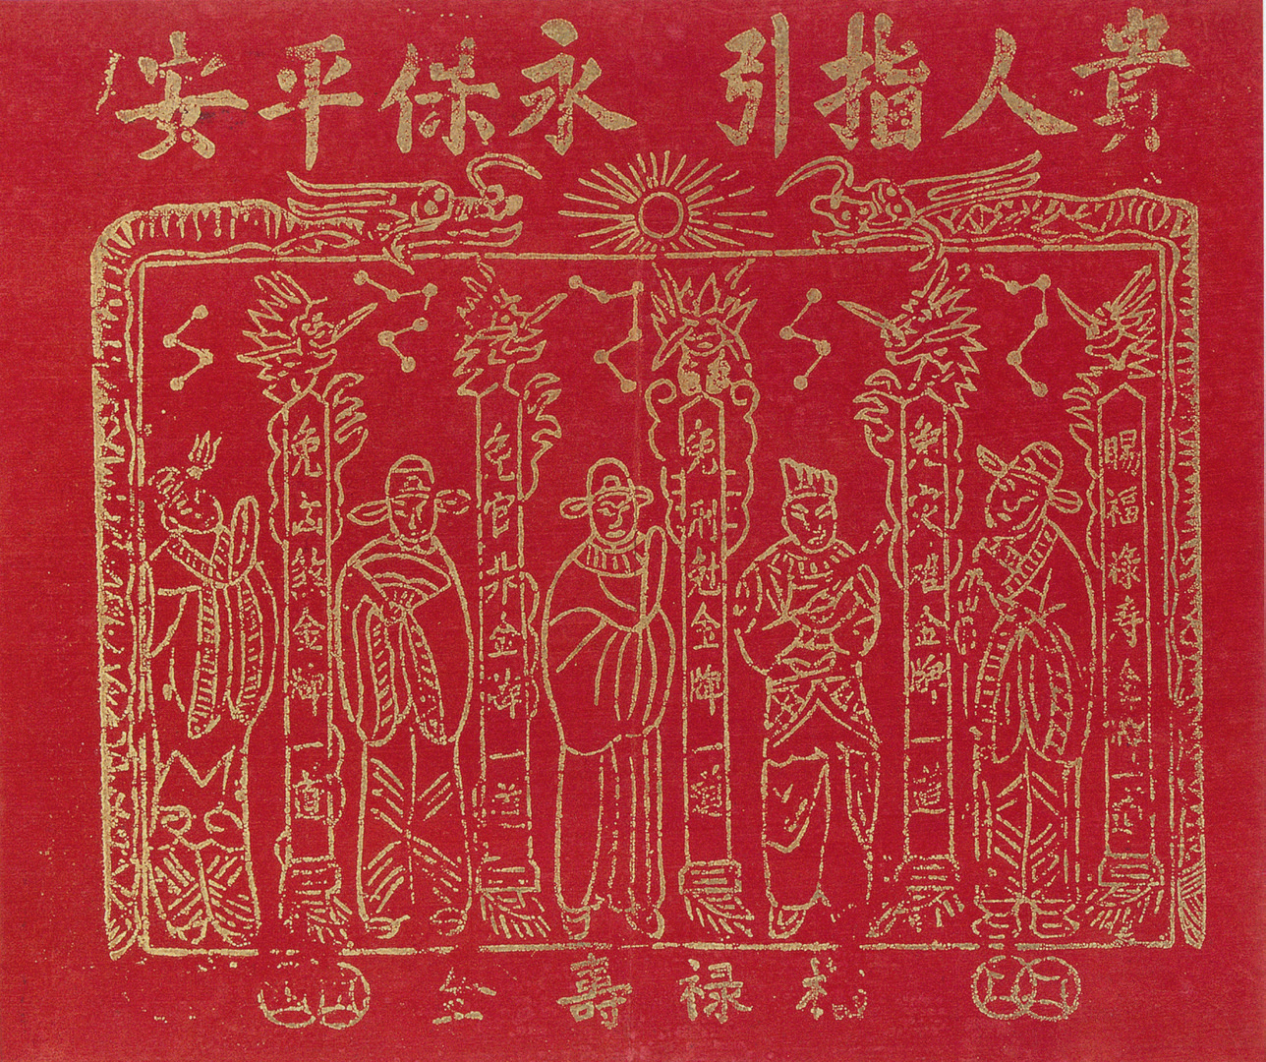 貴人指引 永保平安
賜福祿寿金牌一道
免金牌一道
免刑尅金牌一道
免官非金牌一道
免凶煞金牌一道
福禄壽全